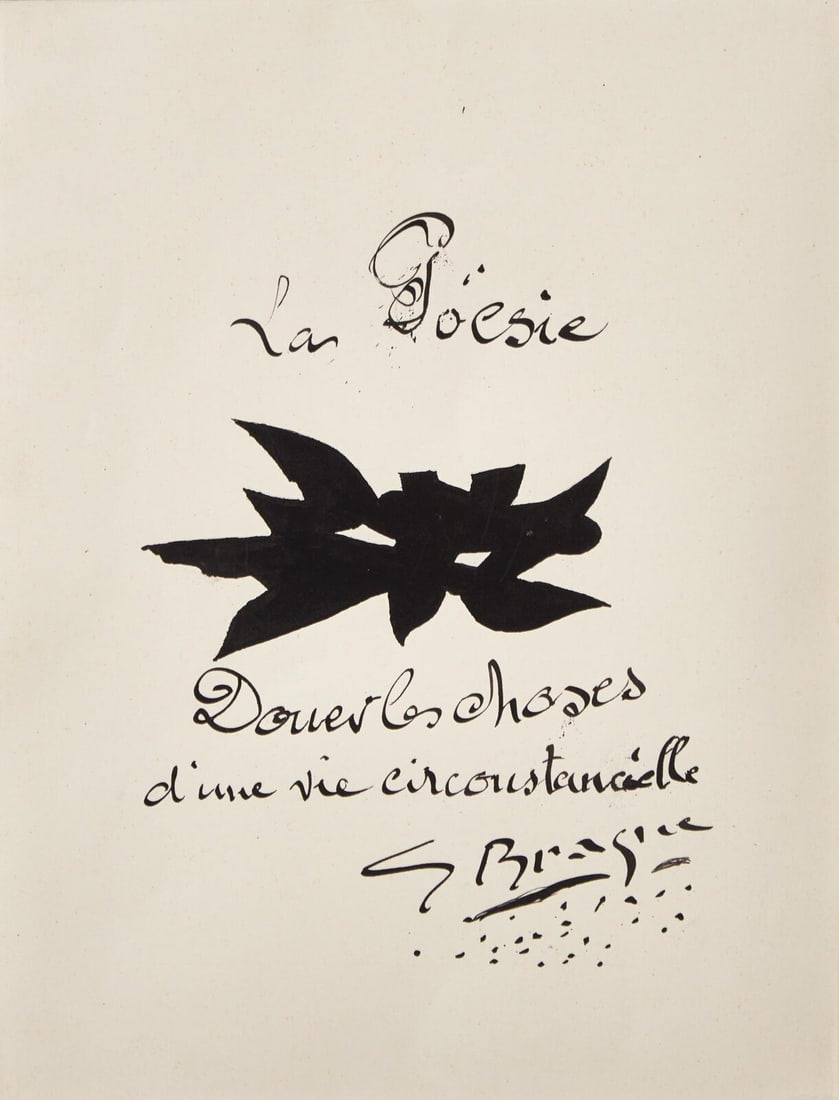 La Poësie
Douer les choses
d'une vie circonstancielle
G Braque